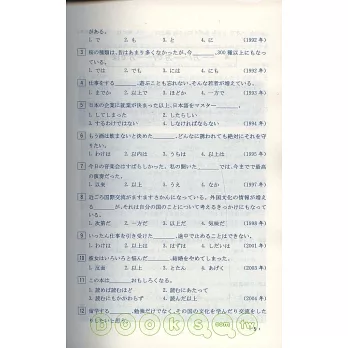 がある。
1. で 2. も 3. と 4. に (1992 年)
3 桜の種類は、昔はあまり多くなかったが、今______、300 種以上にもなっ
ている。
1. では 2. でも 3. には 4. にも (1992 年)
4 仕事をする______、遊ぶことも忘れない、そんな若者が増えている。
1. までか 2. 以上で 3. ほどか 4. 一方で (1993 年)
5 日本の企業に就業が決まった以上、日本語をマスター______。
1. してしまった 2. したらしい
3. するわけではない 4. しなければならない (1994 年)
6 もう酒は飲まないと決めた______、どんなに誘われても絶対にそれを守
りたい。
1. わけは 2. 以内は 3. うちは 4. 以上は (1995 年)
7 今日の音楽会はすばらしかった。私の聞いた______では、今までで最高
の演奏だった。
1. 以来 2. 以上 3. うえ 4. なか (1997 年)
8 近ごろ国際交流がますますさかんになっている。外国文化の情報が増え
る______が、それは自分の国のことについて考えるきっかけにもなって
いる。
1. 次第だ 2. 一方だ 3. 以上だ 4. 気味だ (1998 年)
9 いったん仕事を引き受けた______、途中でやめることはできない。
1. わけは 2. 以上は 3. はずは 4. しだいは (2001 年)
10 彼女はいろいろと悩んだ______、結婚をやめてしまった。
1. 反面 2. 以上 3. とたん 4. あげく (2003 年)
11 この本は______おもしろくなる。
1. 読めば読むほど 2. 読むにあたって
3. 読むにもかかわらず 4. 読んだ以上 (2004 年)
12 留学する______、勉強だけでなく、その国の文化を学んだり交流をした
りしたいと思う。
books.com.tw